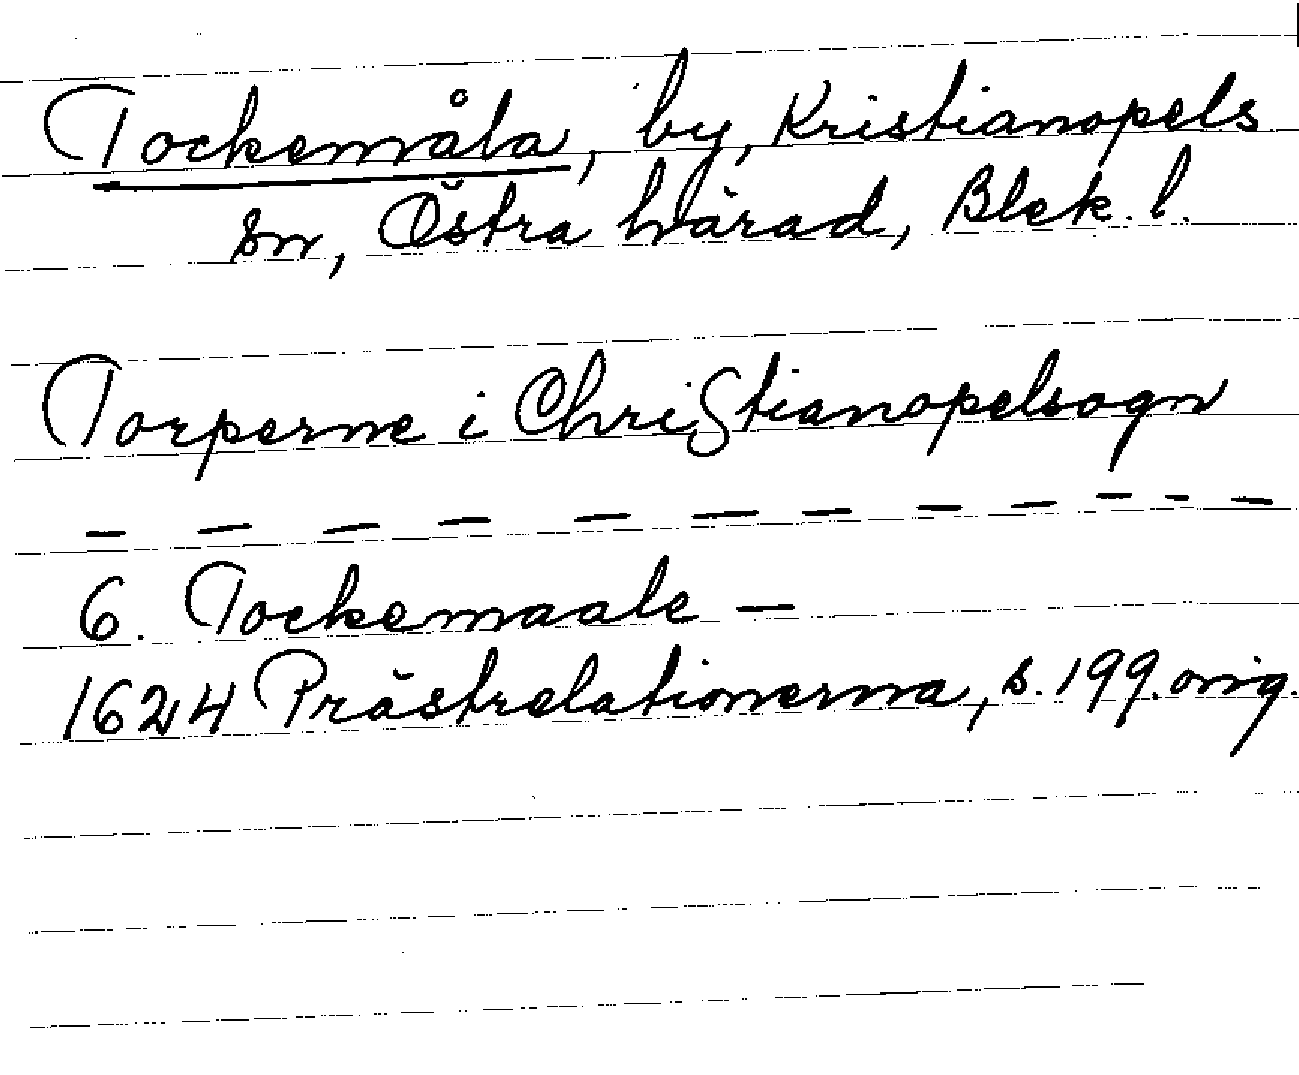 Tockemåla, by, Kristianopels
sn, Östra härad, Blek. l.
Torperne i ChriStianopelsogn
— — — — — — — — — — — —
6. Tockemaale —
1624 Prästrelationerna, s. 199. orig.